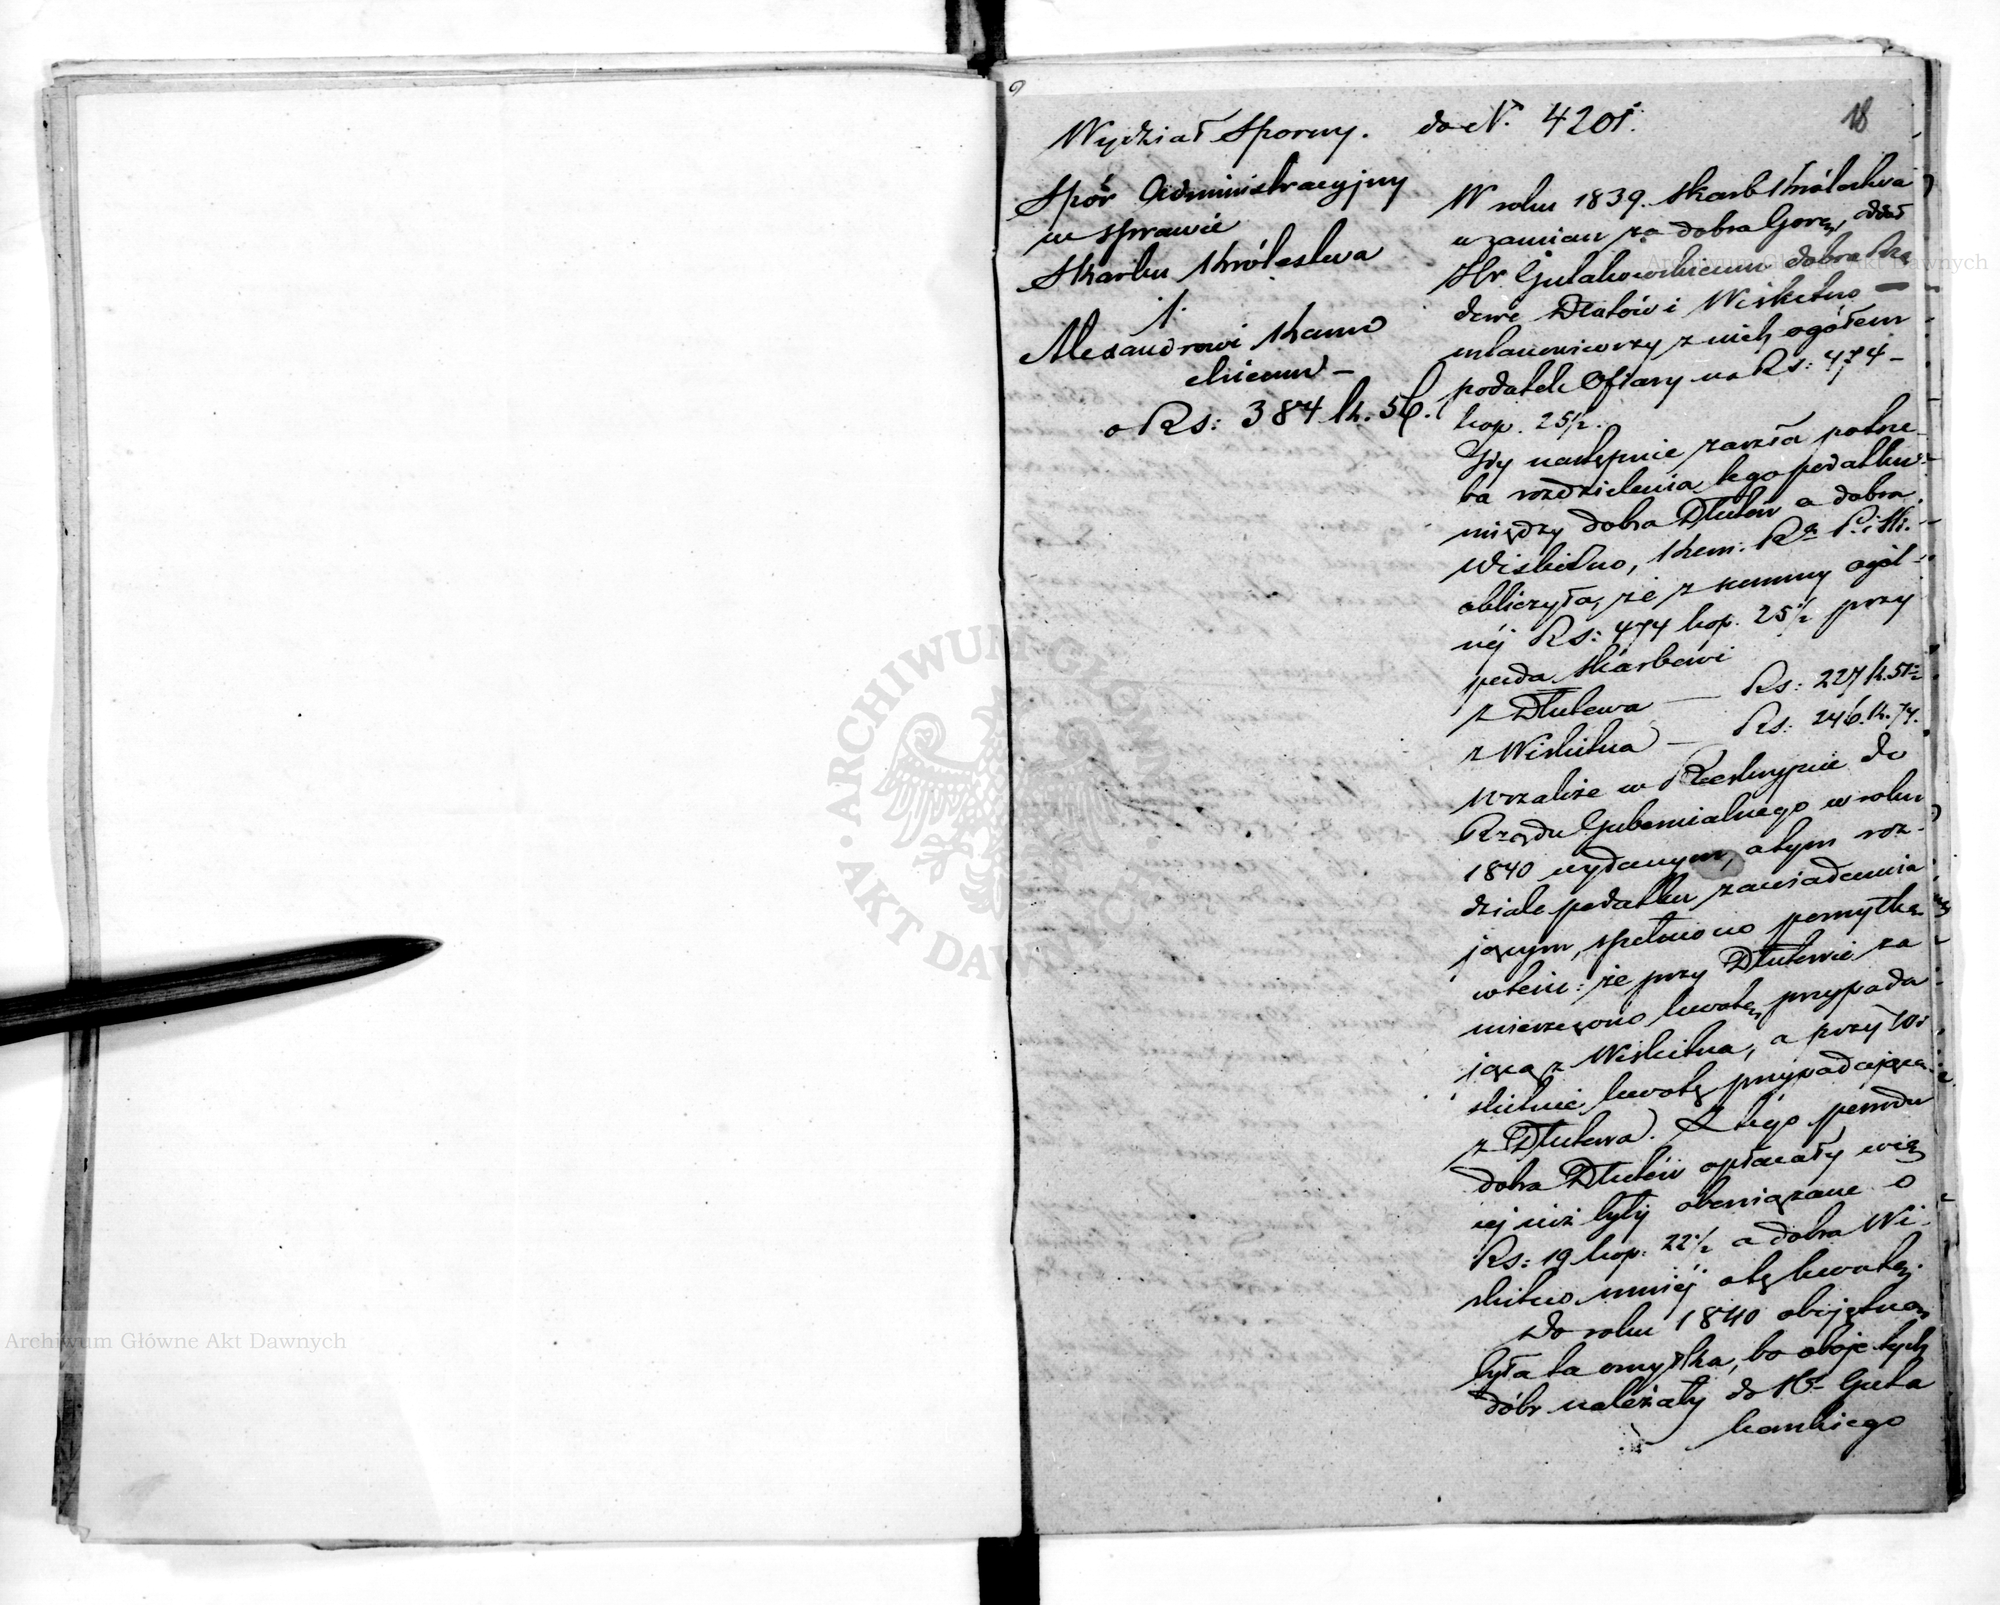 Wydział Sporny. do N. 4201.
18
Spór Administracyjny
w sprawie
Skarbu Królestwa
Alexandrowi Kamo
ckiemu —
o Rs: 384 k. 56.
W roku 1839. Skarb Królestwa
w zamian za dobra Gorę, oddał
Hr. Gutakowskiemu dobra Rzą
dowe Dłutów i Wiskitno —
ustanowiwszy z nich ogółem
podatek Ofiary na Rs: 474 —
kop. 25½.
Gdy następnie zaszła potrze
ba rozdzielenia tego podatku
między dobra Dłutów a dobra
Wiskitno, Kom: Ra P. i Sk.
obliczyła, że z summy ogól
néj Rs: 474 kop. 25½ przy
pada Skarbowi
z Dłutowa — Rs: 227 k. 51½
z Wiskitna — Rs. 246. k. 74.
Wszakże w Reskrypcie do
Rządu Gubernialnego w roku
1840 wydanym, o tym roz-
dziale podatku zawiadamia
jącym, spełniono pomyłkę
w tem: że przy Dłutowie za
mieszczono kwotę przypada
jącą z Wiskitna, a przy Wi
skitnie kwotę przypadającą
z Dłutowa. Z tego powodu
dobra Dłutów opłacały wię
cej niż były obowiązane o
Rs: 19 kop: 22½ a dobra Wi-
skitno mniéj o tę kwotę.
Do roku 1840 obojętną
była ta omyłka, bo oboje tych
dóbr należały do Hr Guta
kowskiego
ARCHIWUM GŁÓWNE AKT DAWNYCH
Archiwum Główne Akt Dawnych
Archiwum Główne Akt Dawnych